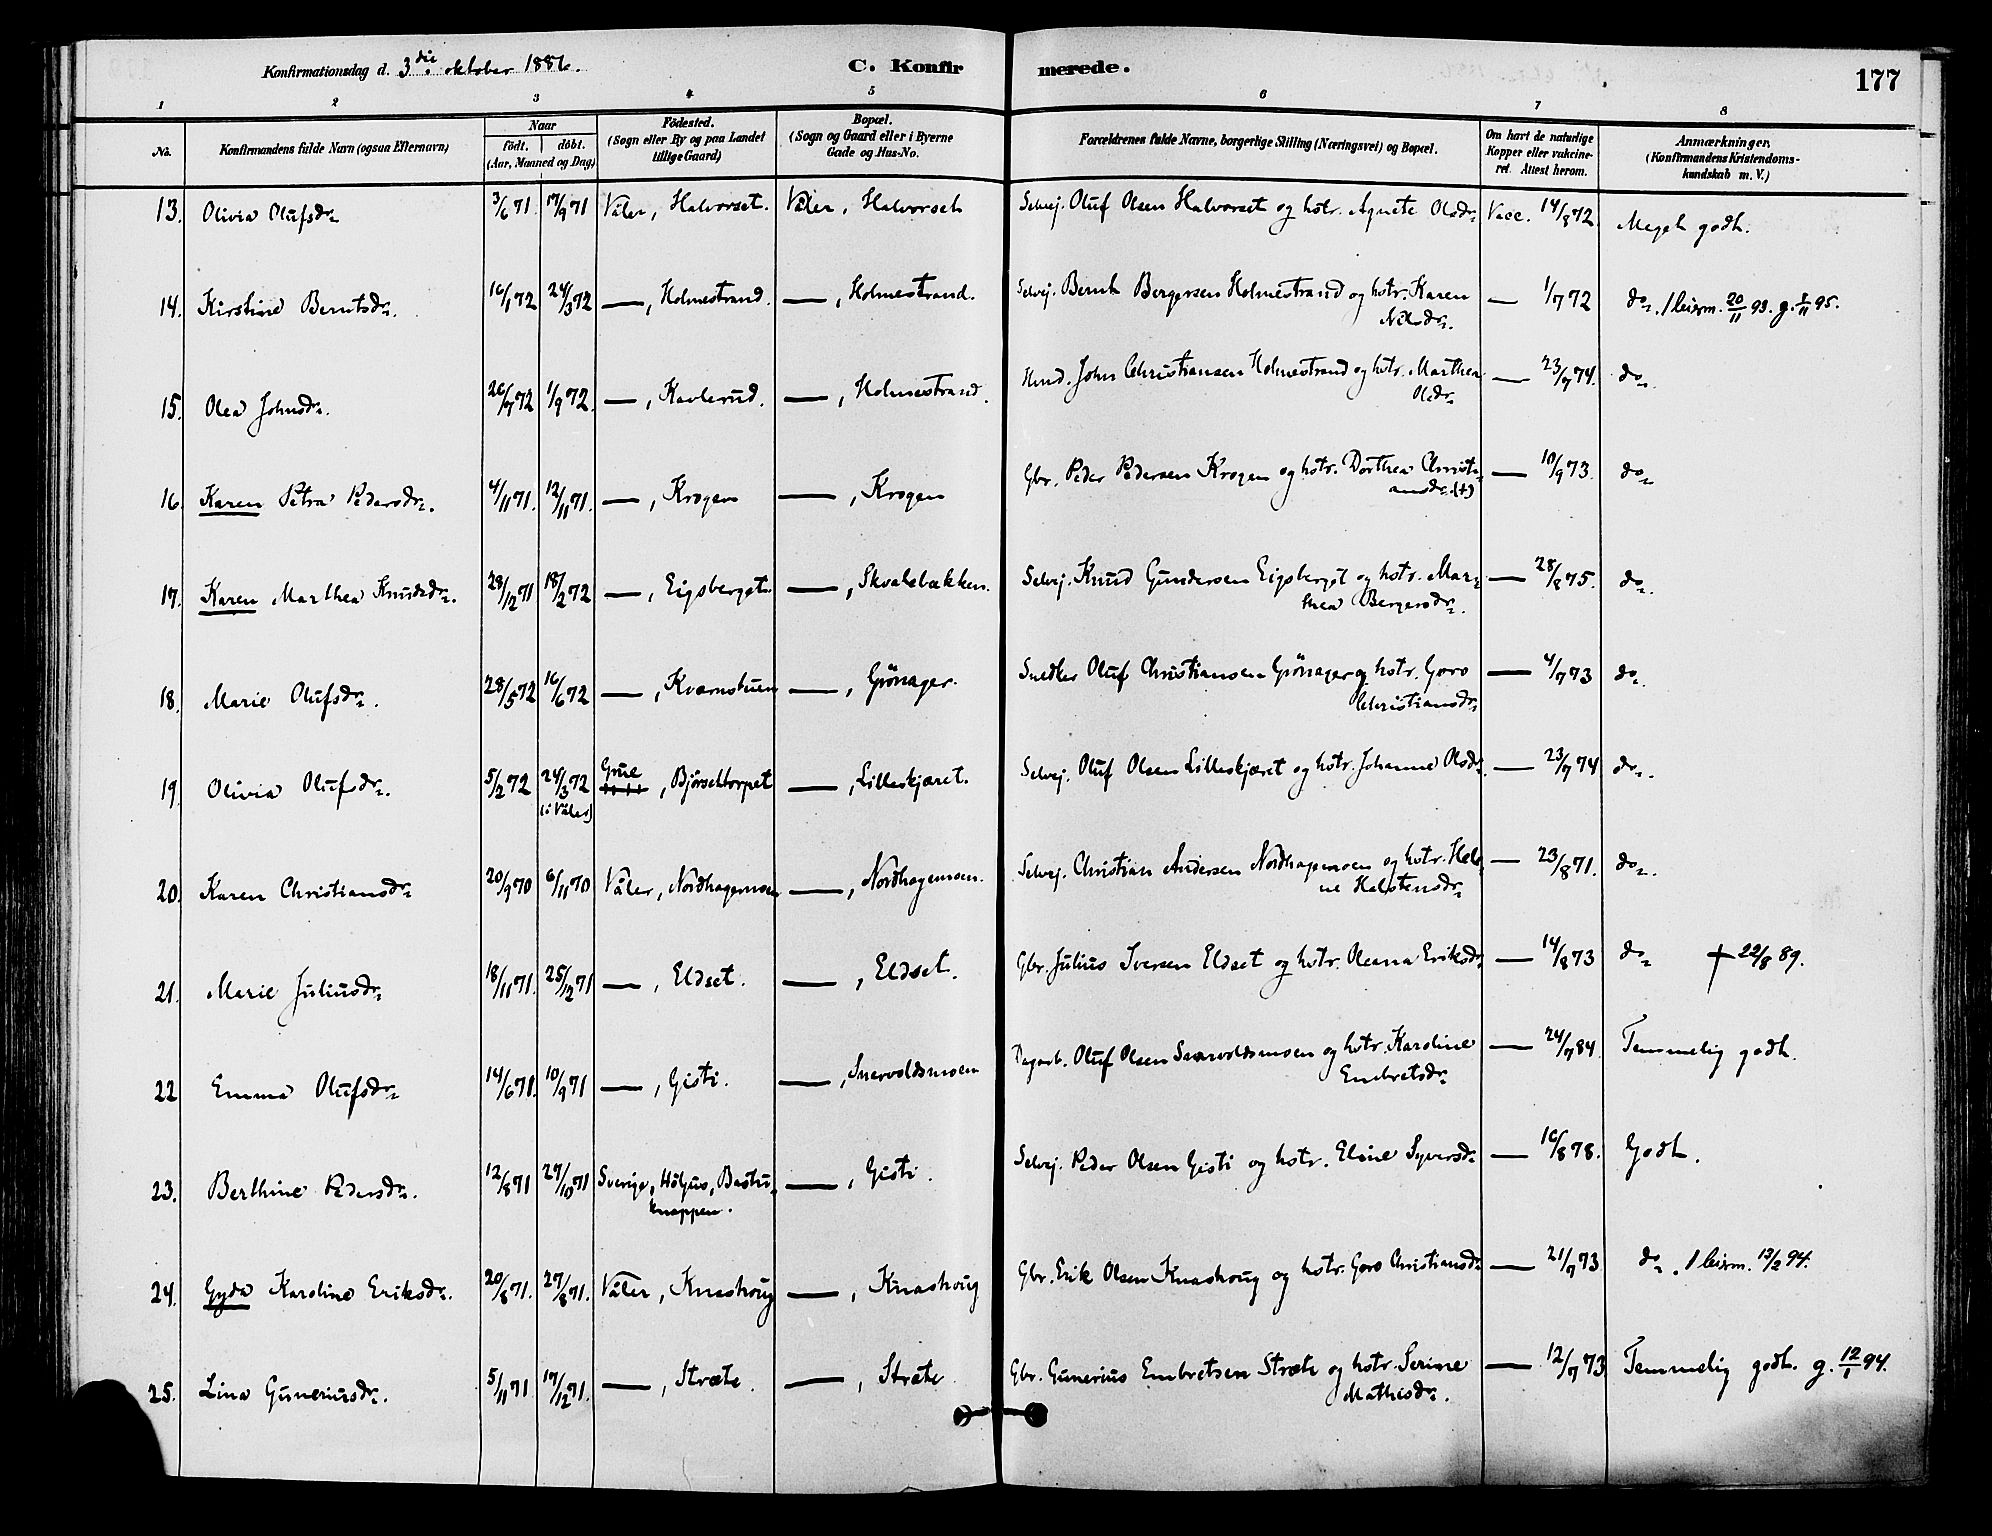 Konfirmationsdag d. 3die oktober 1886. C. Konfirmerede. 177
1 2 3 4 5 6 7 8
No. Konfirmandens fulde Navn (ogsaa Efternavn) Naar födt. döbt. (Aar, Maaned og Dag) Födested. (Sogn eller By og paa Landet tillige Gaard) Bopæl. (Sogn og Gaard eller i Byerne Gade og Hus-No. Forældrenes fulde Navne, borgerlige Stilling (Næringsvei) og Bopæl. Om havt de naturlige Kopper eller vakcineret. Attest herom. Anmærkninger. (Konfirmandens Kristendomskundskab m. V.)
13. Olivia Olufsdr. 3/6 71. 17/9 71 Våler, Halvorset. Våler, Halvorset Selvej. Oluf Olsen Halvorset og hstr. Agnete Olsdr. Vacc. 14/8 72. Meget godt.
14. Kirstine Berntsdr. 16/1 72 24/3 72 —, Holmestrand. —, Holmestrand. Selvej. Bernt Bergersen Holmestrand og hstr. Karen
Nilsdr. — 1/7 72 do. 1 leierm. 20/11 93. g. 1/11 95.
15. Olea Johnsdr. 26/7 72 1/9 72. —, Kavlerud. —, Holmestrand. Hmd. John Christiansen Holmestrand og hstr. Marthea
Olsdr. — 23/7 74. do.
16. Karen Petra Pedersdr. 4/11 71. 12/11 71. —, Krogen —, Krogen Gbr. Peder Pedersen Krogen og hstr. Dorthea Christi-
ansdr. (+) — 10/9 73. do.
17. Karen Marthea Knudsdr. 28/12 71 18/2 72 —, Eigsberget. —, Skvalsbækken. Selvej. Knud Gundersen Eigsberget og hstr. Mar-
thea Bergersdr. — 28/8 75. do.
18. Marie Olufsdr. 28/5 72 16/6 72 —, Kvernstuen —, Grönager. Snedker Oluf Christiansen Grönager og hstr. Goro
Christiansdr. — 4/7 73 do.
19. Olivia Olufsdr. 5/2 72 24/3 72 (i Våler) Grue, Björseltorpet —, Lilleskjæret. Selvej. Oluf Olsen Lilleskjæret og hstr. Johanne Olsdr. — 23/7 74 do.
20. Karen Christiansdr. 20/9 70 6/11 70 Våler, Nordhagemoen —, Nordhagemoen. Selvej. Christian Andersen Nordhagemoen og hstr. Hele-
ne Halstensdr. — 23/8 71. do.
21. Marie Juliusdr. 18/11 71. 25/12 71 —, Eldset. —, Eldset. Gbr. Julius Iversen Eldset og hstr. Oleana Eriksdr. — 14/8 73 do. † 22/8 89.
22 Emma Olufsdr. 14/6 71. 10/9 71 —, Gisti. —, Snervoldsmoen Dagarb. Oluf Olsen Snarvoldsmoen og hstr. Karoline
Embretsdr. — 24/7 84. Temmelig godt.
23. Berthine Pedersdr. 12/8 71 29/10 71 Sverige, Höljes, Bastu-
knappen. —, Gisti. Selvej. Peder Olsen Gisti og hstr. Eline Syversdr. — 16/8 78. Godt.
24. Gyda Karoline Eriksdr. 20/8 71. 27/8 71. Våler, Knashoug —, Knashoug Gbr. Erik Olsen Knashoug og hstr. Goro Christiansdr. — 21/7 73 do. 1 leierm. 13/2 94.
25. Lina Guneriusdr. 5/11 71. 17/12 71. —, Stræte. —, Stræte. Gbr. Gunerius Embretsen Stræte og hstr. Serine
Mathisdr. — 12/7 73 Temmelig godt. g. 12/1 94.